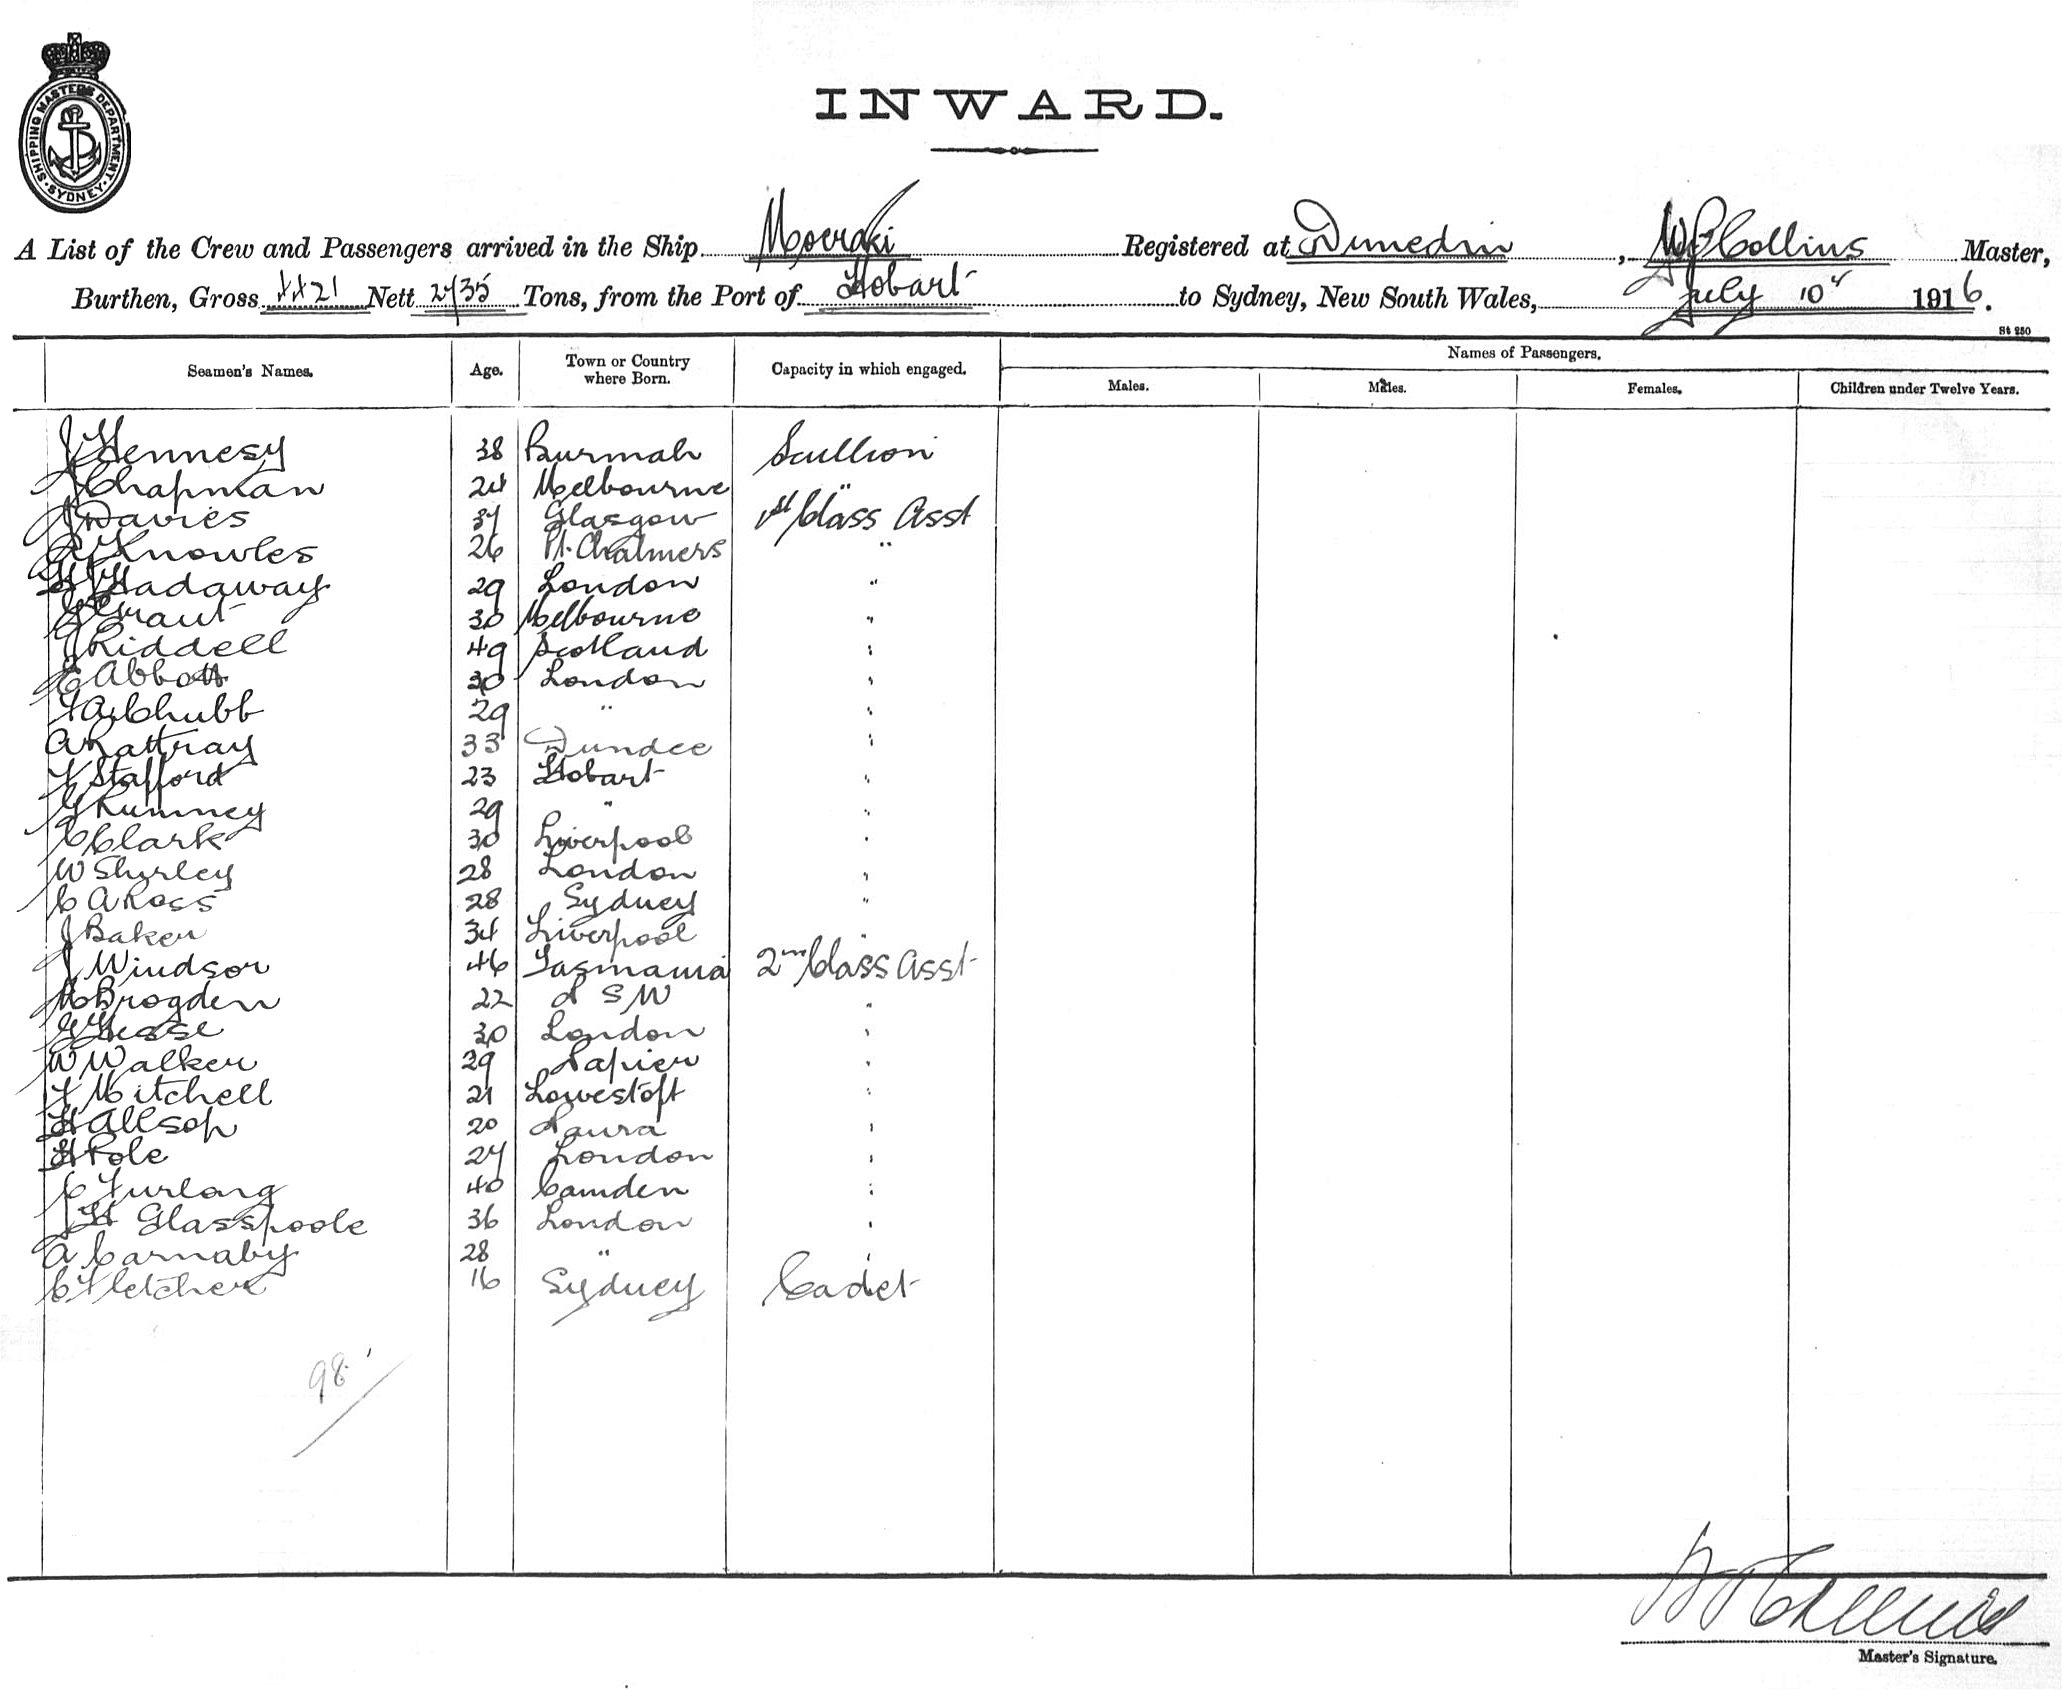 SHIPPING MASTERS DEPARTMENT · SYDNEY ·
INWARD.
A List of the Crew and Passengers arrived in the Ship Moeraki Registered at Dunedin, W Collins Master,
Burthen, Gross 4421 Nett 2735 Tons, from the Port of Hobart to Sydney, New South Wales, July 10th 1916.
St 250
Seamen's Names. Age. Town or Country where Born. Capacity in which engaged. Names of Passengers.
Males. Males. Females. Children under Twelve Years.
J Hennesy 38 Burmah Scullion
J Chapman 24 Melbourne "
J Davies 37 Glasgow 1st Class Asst
A Knowles 26 Pt. Chalmers "
Hadaway 29 London "
Graut 30 Melbourne "
J Riddell 49 Scotland "
E Abbott 30 London "
F A Chubb 29 " "
A Rattray 33 Dundee "
F Stafford 23 Hobart "
G Rumney 29 " "
C Clark 30 Liverpool "
W Shirley 28 London "
C A Ross 28 Sydney "
J Baker 34 Liverpool "
J Windsor 46 Tasmania 2nd Class Asst
M Brogden 22 N S W "
G Hesse 30 London "
W Walker 29 Napier "
F Mitchell 21 Lowestoft "
H Allsop 20 Naura "
H Pole 27 London "
C Furlong 40 Camden "
J H Glasspoole 36 London "
A Carnaby 28 " "
C Fletcher 16 Sydney Cadet
98
Collins
Master's Signature.